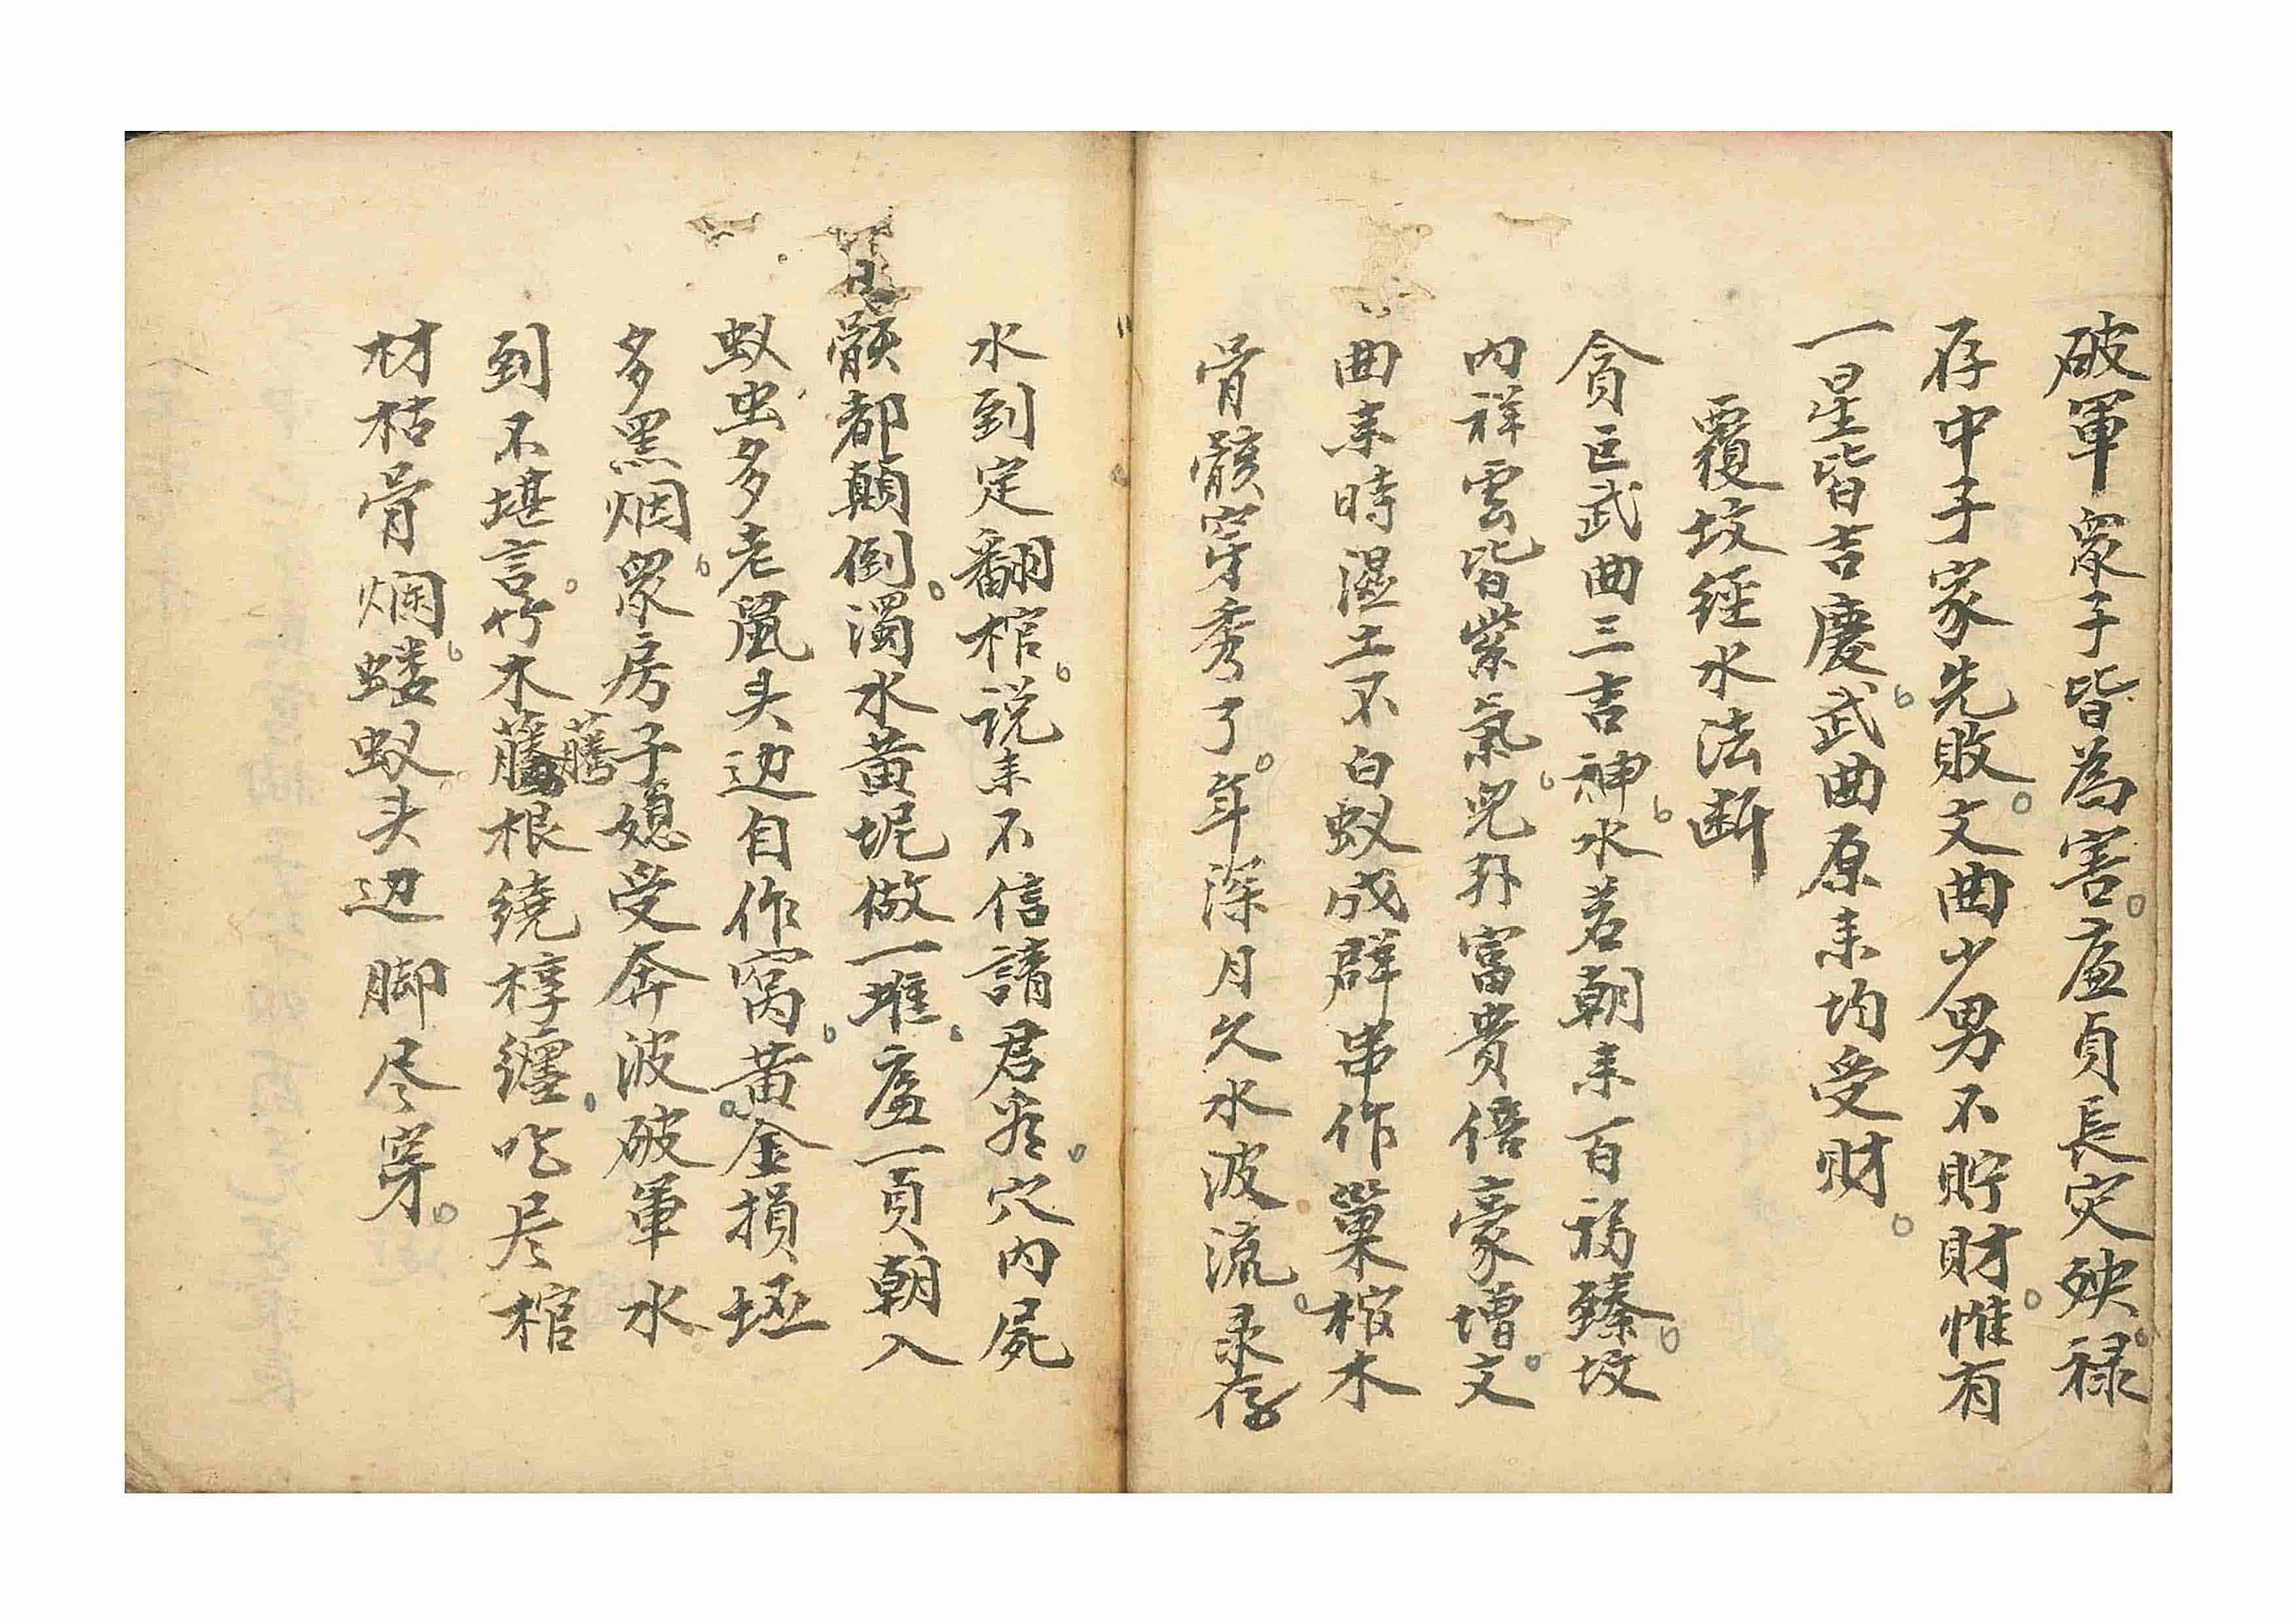 破軍眾子皆為害。廉貞長灾殃。禄
存中子家先敗。文曲少男不貯財。惟有
一星皆吉慶。武曲原来均受财。
覆坟經水法断
贪巨武曲三吉神。水若朝来百福臻。坟
内祥雲皆紫氣。兒孙富貴倍豪增。文
曲来時濕土不白蚁成群串作巢棺木
骨骸穿秀了。年深月久水波流。录存
水到定翻棺。说来不信請君看。穴内屍
骸都顛倒。濁水黄坭做一堆。廉貞朝入
蚁虫多老鼠头边自作窝。黄金損
多黑烟。眾房子媳受奔波。破軍水
到不堪言。竹木藤根繞椁纏。吃尽棺
材枯骨烂。蝼蚁头边脚尽穿。